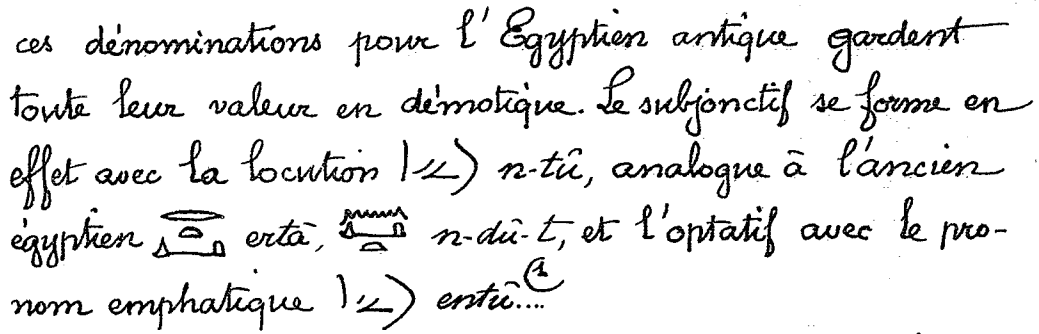 ces dénominations pour l'Egyptien antique gardent
toute leur valeur en démotique. Le subjonctif se forme en
effet avec la locution n-tû, analogue à l'ancien
égyptien ertâ, n-dû-t, et l'optatif avec le pro-
nom emphatique entû....(1